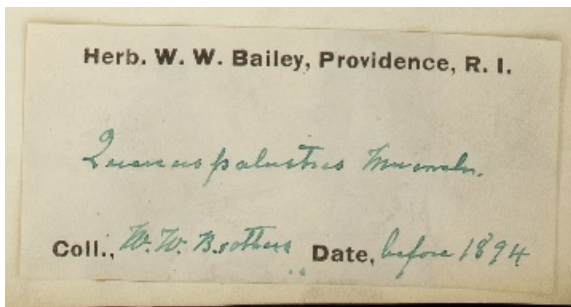 Herb. W. W. Bailey, Providence, R. I.
Quercus palustris Muench.
Coll., W. W. Brothers Date, before 1894